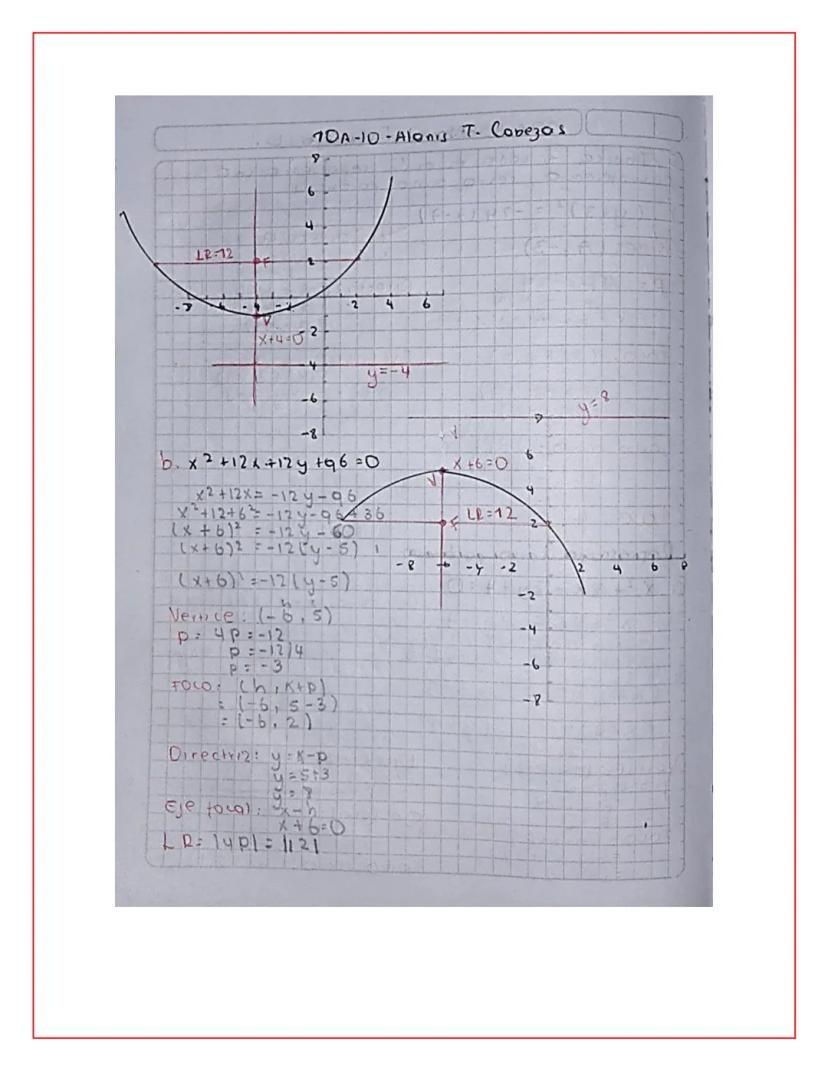 10A-10-Alanis T. Cabezas
8
6
4
LR=12
F
2
-8 -6 -4 -2 2 4 6
V
x+4=0
-2
-4
y=-4
-6
-8
y=8
b. x² +12x+12y+96=0
x²+12x= -12y-96
x²+12+6²=-12y-96+36
(x+6)² =-12y-60
(x+6)² =-12(y-5)
(x+6)²=-12(y-5)
x+6=0
6
V
4
F LR=12
2
-8 -6 -4 -2 2 4 6 8
-2
-4
-6
-8
h k
Vertice: (-6, 5)
p= 4p=-12
p=-12/4
p=-3
Foco: (h, k+p)
= (-6, 5-3)
= (-6, 2)
Directriz: y=k-p
y=5+3
y=8
Eje focal: x=h
x+6=0
LR= |4p|= |12|